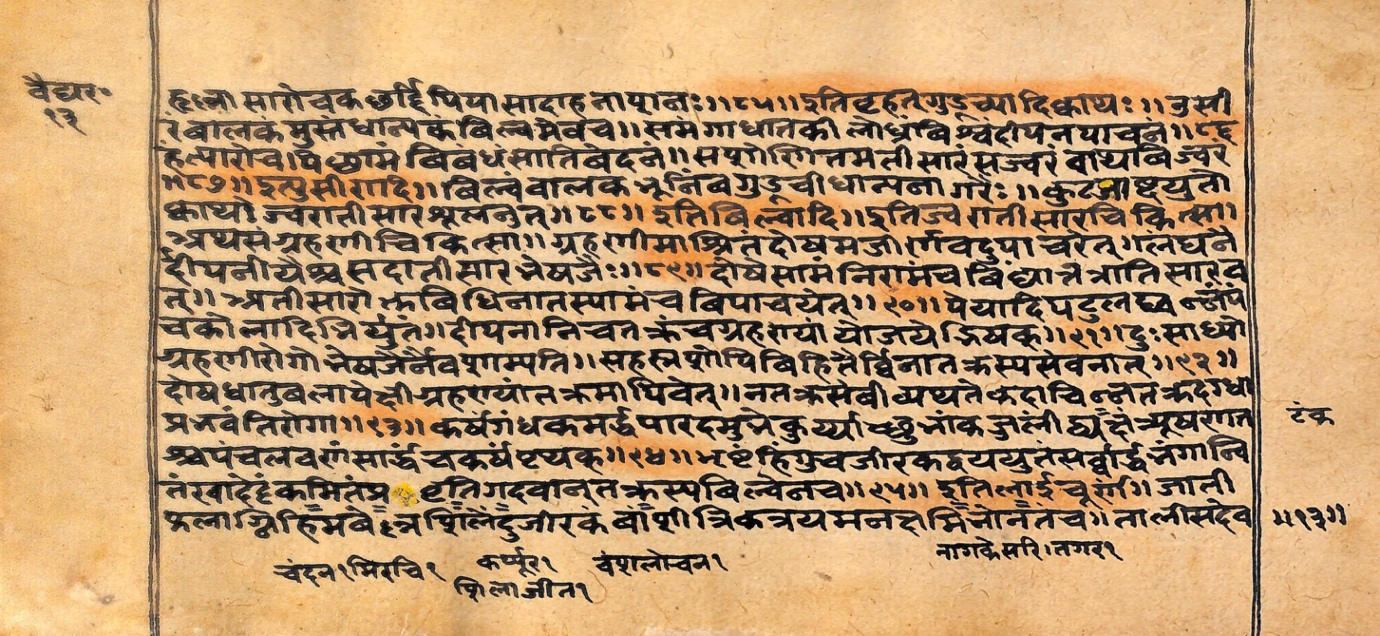 वैद्यर॰
१३
हृल्लासारोचक छर्दि पिपासादाहनाशनः॥८५॥इतिबृहत् गुडूच्यादिक्वाथः॥उसी
रंबालकंमुस्तंधान्यकंबिल्वमेवच॥समंगाधातकीलोध्रंविश्वंदीपनपाचनं॥८६
हंत्यारोचपिच्छामं विबंधंसातिवेदनं॥सशोणितमतीसारंसज्वरं वाथविज्वरं
॥८७॥इत्युसीरादि॥बिल्वंबालकभूनिंबगुडूचीधान्यनागरैः॥कुटजाष्टयुतो
क्वाथोज्वरातीसारशूलनुत्॥८८॥इतिबिल्वादि॥इतिज्वरातीसारचिकित्सा॥
अथसंग्रहणीचिकित्सा॥ग्रहणीमाश्रितंदोषमजीर्णवदुपाचरेत्॥लंघनै
र्दीपनीयैश्चसदातीसारभेषजैः॥८९॥दोषंसामंनिरामंचविद्यात्तत्रातिसारव
त्॥अतीसारोक्तविधिनातस्यामंच विपाचयेत्॥९०॥पेयादिपटुलघ्वन्नंपं
चकोलादिभिर्युतं॥दीपनानिचतक्रंचग्रहण्यांयोजयेद्भिषक्॥९१॥दुःसाध्यो
ग्रहणीरोगोभेषजैर्नैवशाम्यति॥सहस्रशोपिविहितैर्विनातक्रस्यसेवनात्॥९२॥
दोषधातुबलापेक्षीग्रहण्यांतक्रमापिबेत्॥नतक्रसेवीव्यथतेकदाचिन्नतक्रदग्धा
प्रभवंतिरोगा॥९३॥कर्षंगंधकमर्द्धपारदमुभेकुर्य्याच्छुभांकज्जलींद्व्यक्षंत्र्यूषणत
श्चपंचलवणंसार्द्धंचकर्षंपृथक्॥९४॥भृष्टंहिंगुचजीरकद्वययुतंसर्वार्द्धभंगान्वि
तंखादेट्टंकमितंप्र वृत्तिगदवान्तक्रस्यबिल्वेनच॥९५॥इतिलाईचूर्णं॥जाती
फलाग्निहिमवेल्लशिलेंदुजीरकंवांशीत्रिकत्रयमनक्षमितंनतंच॥तालीसदेव
टंक
॥१३॥
चंदन१मिरचि१ कर्प्पूर१ वंशलोचन१ नागकेसरि१तगर१
शिलाजीत१